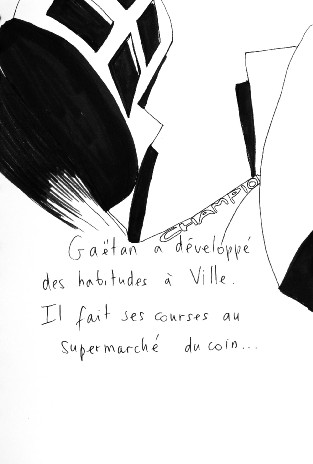 CHAMPION
Gaëtan a développé
des habitudes à Ville.
Il fait ses courses au
supermarché du coin...